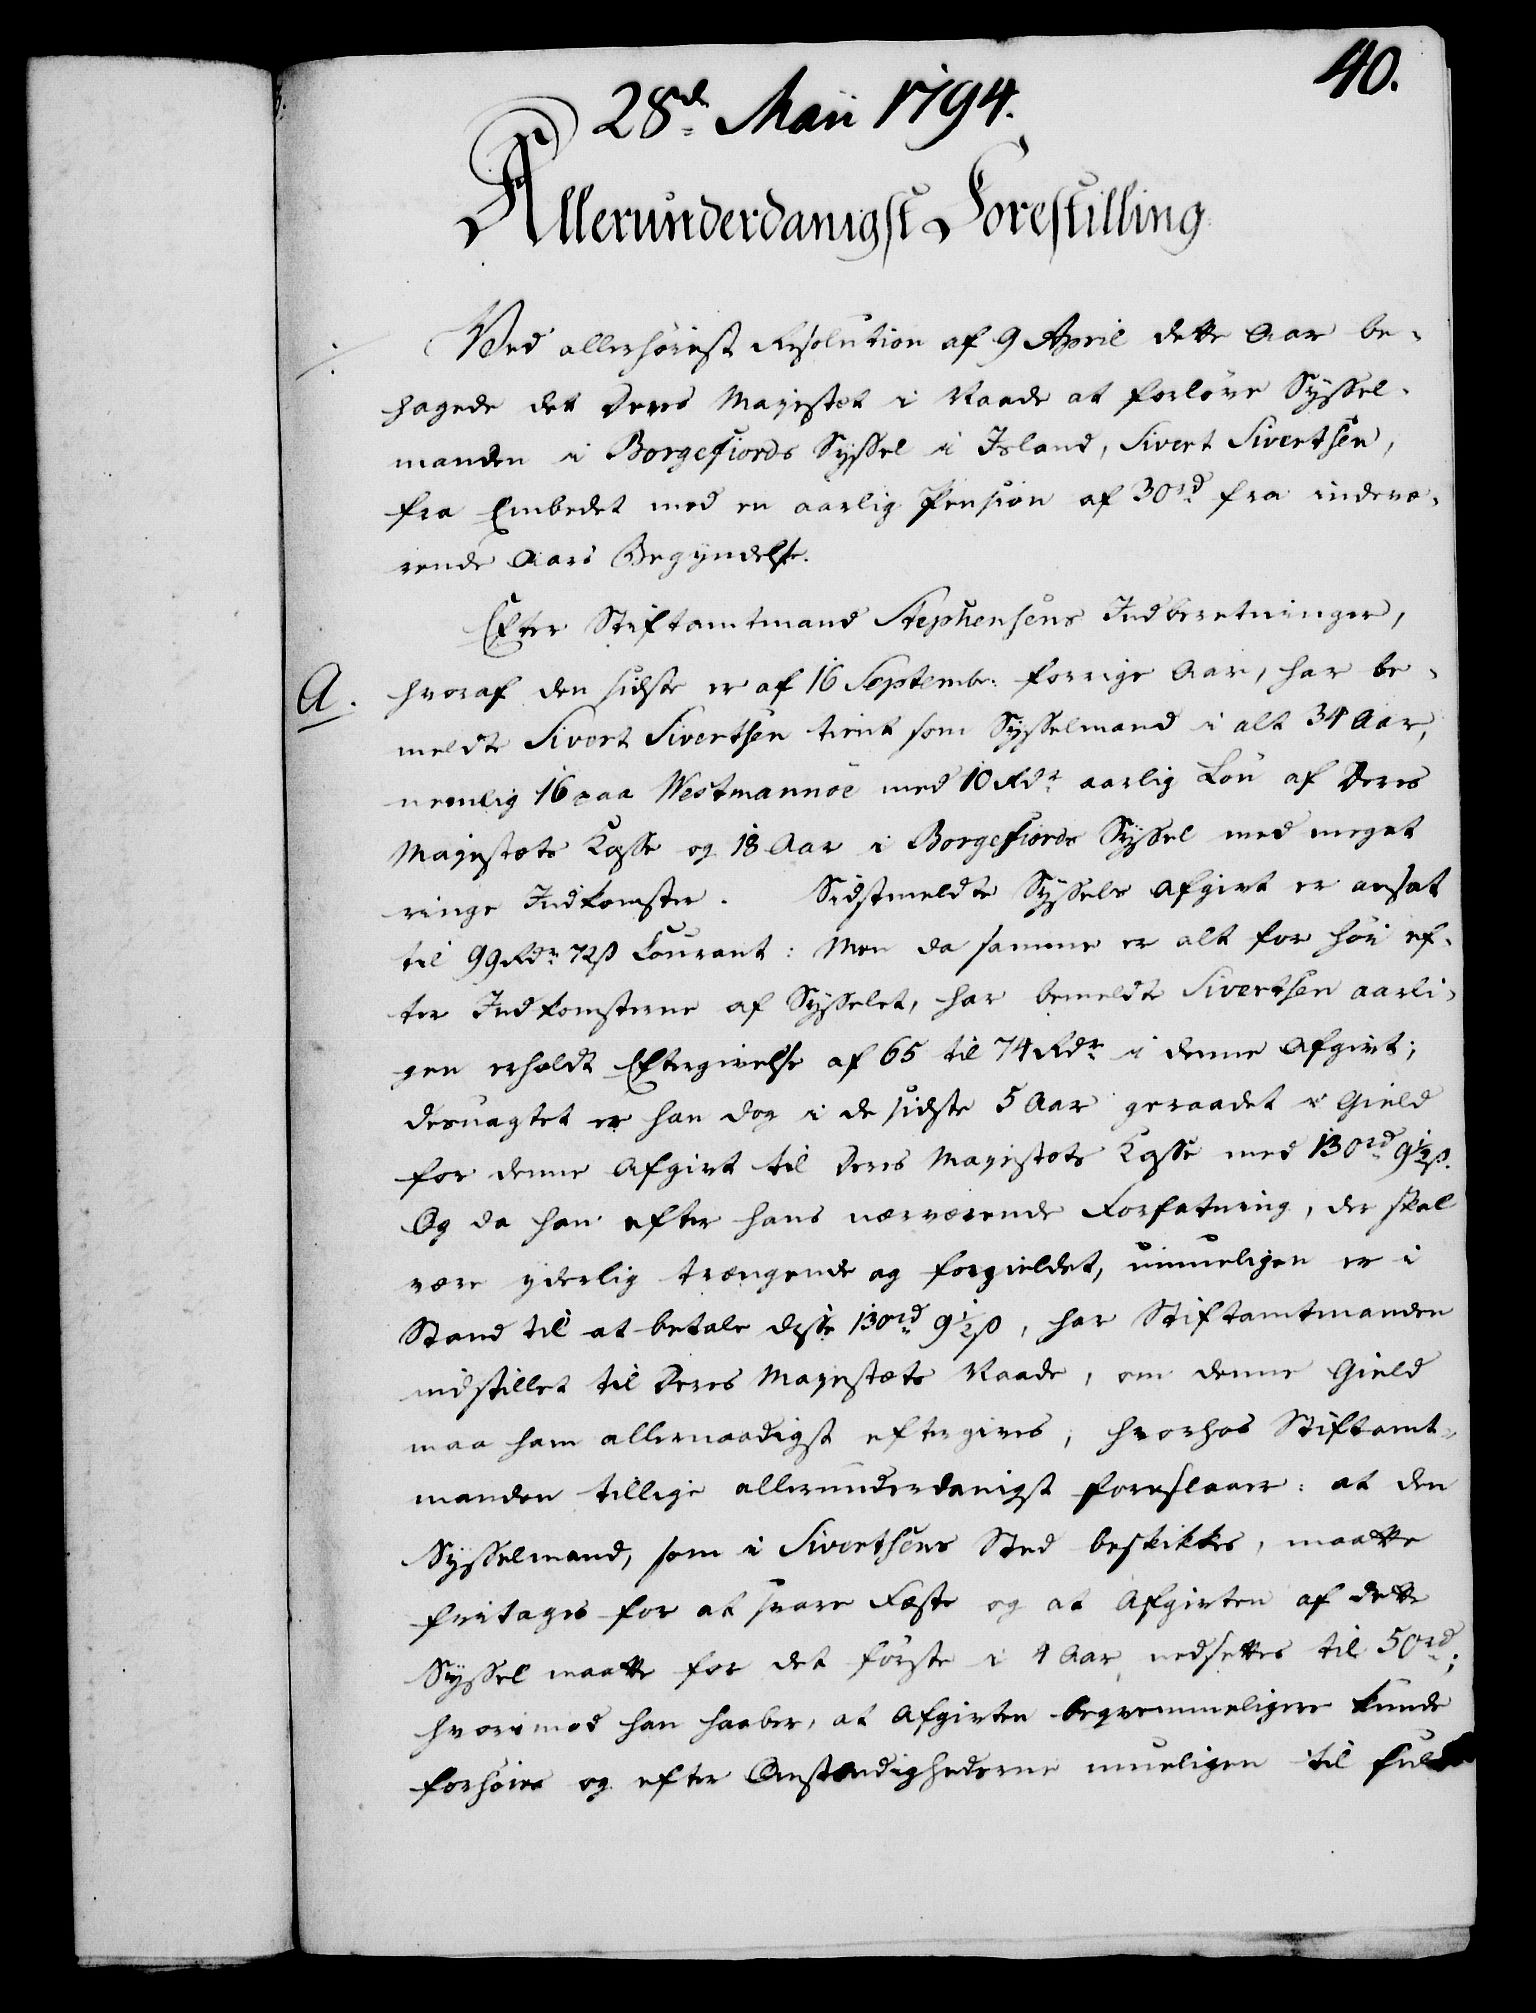 40.
28de Maii 1794.
Allerunderdanigst Forestilling
Ved allerhöiest Resolution af 9 April dette Aar be-
hagede det Deres Majestæt i Naade at forlöve Syssel-
manden i Borgefiords Syssel i Island, Sivert Sivertsen,
fra Embedet med en aarlig Pension af 30rd fra indevæ-
rende Aars Begyndelse.
Efter Stiftamtmand Stephensens Indberetninger,
A. hvoraf den sidste er af 16 Septembr. forrige Aar, har be-
meldte Sivert Sivertsen tient som Sysselmand i alt 34 Aar,
nemlig 16 paa Westmannöe med 10 Rdr aarlig Lön af Deres
Majestæts Kasse og 18 Aar i Borgefiords Syssel med meget
ringe Indkomster. Sidstmeldte Syssels Afgivt er ansat
til 99 Rdr 72 ß Courant: Men da samme er alt for höi ef-
ter Indkomsterne af Sysselet, har bemeldte Sivertsen aarli-
gen erholdt Eftergivelse af 65 til 74 Rdr i denne Afgivt;
desuagtet er han dog i de sidste 5 Aar geraadet i Gield
for denne Afgivt til Deres Majestæts Kasse med 130rd 9½ß.
Og da han efter hans nærværende Forfatning, der skal
være yderlig trængende og forgieldet, uimueligen er i
Stand til at betale disse 130rd 9½ß, har Stiftamtmanden
indstillet til Deres Majestæts Naade, om denne Gield
maa ham allernaadigst eftergives, hvorhos Stiftamt-
manden tillige allerunderdanigst foreslaaer: at den
Sysselmand, som i Sivertsens Sted beskikkes, maatte
fritages for at svare Fæste og at Afgivten af dette
Syssel maatte for det förste i 4 Aar nedsettes til 50rd;
hvorimod han haaber, at Afgivten beqvemmeligere kunde
forhöies og efter Omstændighederne mueligen til fulde